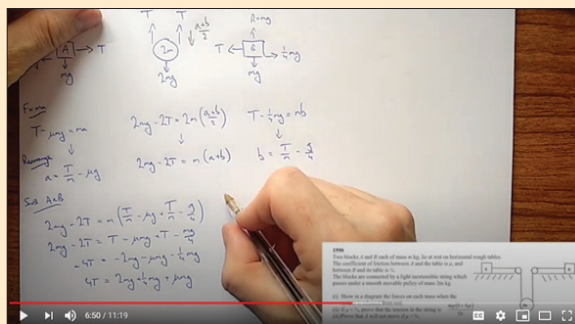 T T
A → T 2m a+b/2 R=mg
T ← B → ¼mg
mg 2mg mg
F=ma
T - μmg = ma 2mg - 2T = 2m(a+b/2) T - ¼mg = mb
Rearrange 2mg - 2T = m(a+b) b = T/m - g/4
a = T/m - μg
Sub A+B
2mg - 2T = m(T/m - μg + T/m - g/4)
2mg - 2T = T - μmg + T - mg/4
-4T = -2mg - μmg - ¼mg
4T = 2mg + ¼mg + μmg
1998
Two blocks A and B each of mass m kg, lie at rest on horizontal rough tables.
The coefficient of friction between A and the table is μ, and
between B and its table is ¼.
The blocks are connected by a light inextensible string which
passes under a smooth movable pulley of mass 2m kg
(i) Show in a diagram the forces on each mass when the
prove that the tension in the string is
6:50 / 11:19